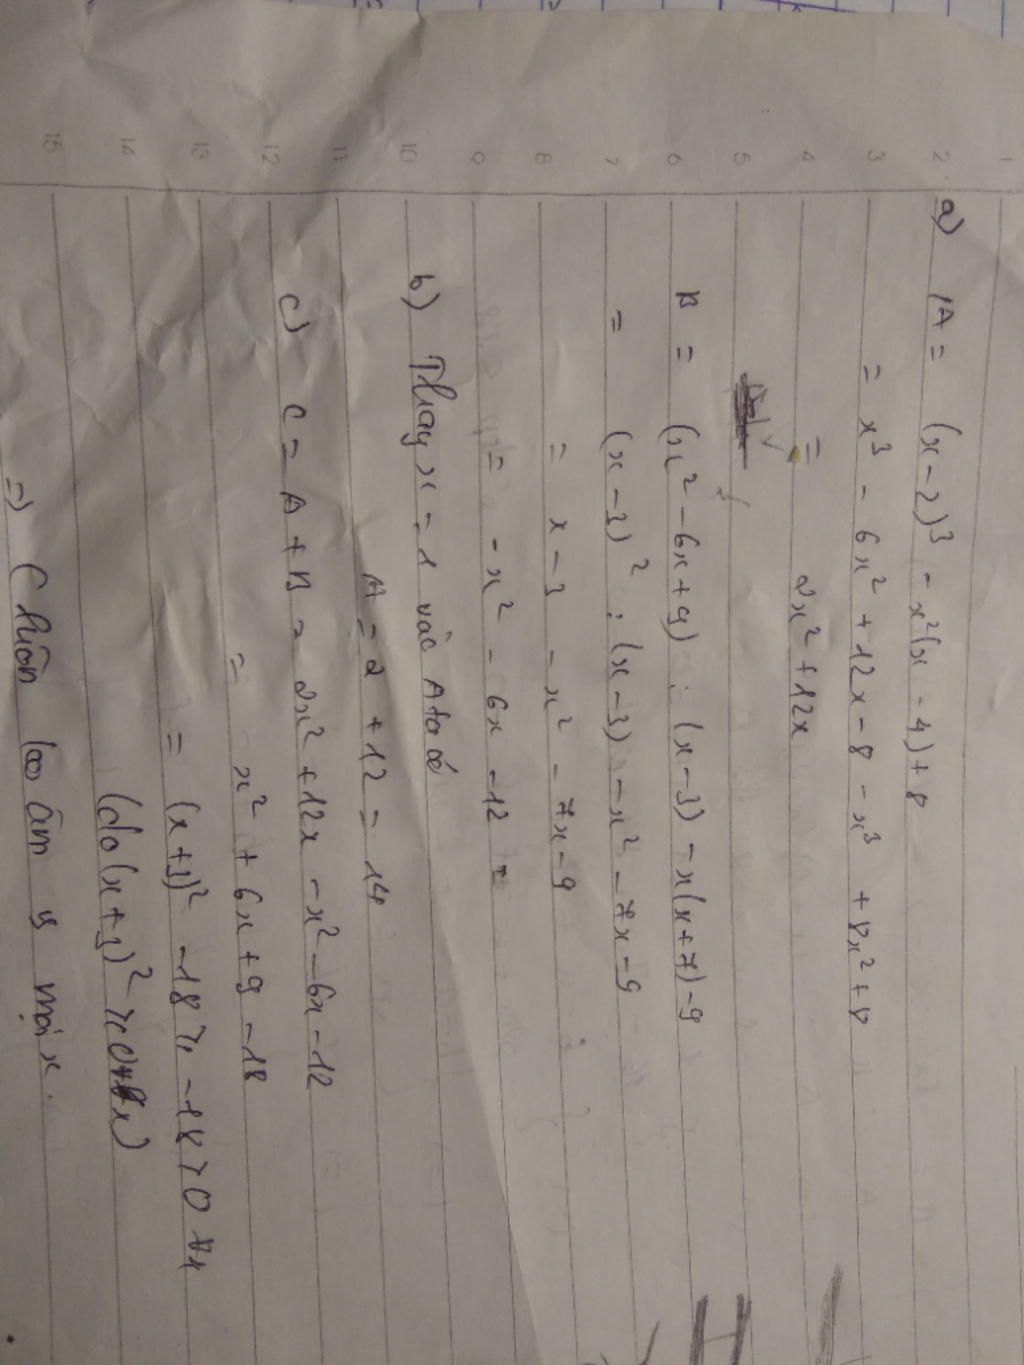 1
2
3
4
5
6
7
8
9
10
11
12
13
14
15
a) A = (x - 2)³ - x²(x - 4) + 8
= x³ - 6x² + 12x - 8 - x³ + 8x² + 8
= 2x² + 12x
B = (x² - 6x + 9) : (x - 3) - x(x + 7) - 9
= (x - 3)² : (x - 3) - x² - 7x - 9
= x - 3 - x² - 7x - 9
= - x² - 6x - 12
b) Thay x = 1 vào A ta có
A = 2 + 12 = 14
c) C = A + B = 2x² + 12x - x² - 6x - 12
= x² + 6x + 9 - 18
= (x + 3)² - 18 ≥ - 18 > 0 ∀x
(do (x + 3)² ≥ 0 ∀x)
=> C luôn âm mọi x.